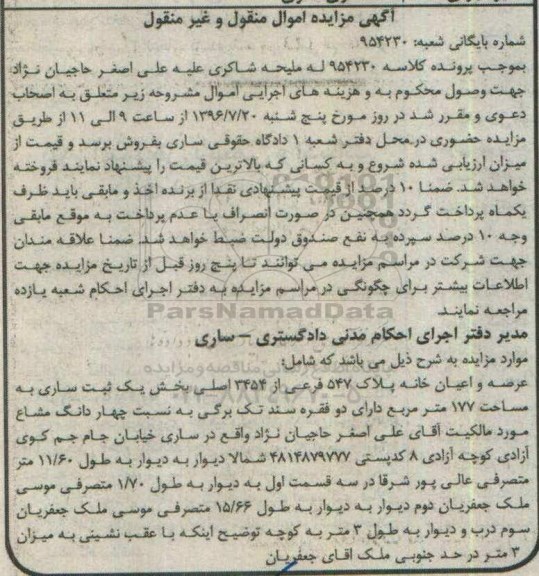 آگهی مزایده اموال منقول و غیر منقول
شماره بایگانی شعبه: ۹۵۴۲۳۰
بموجب پرونده کلاسه ۹۵۴۲۳۰ له ملیحه شاکری علیه علی اصغر حاجیان نژاد
جهت وصول محکوم به و هزینه های اجرایی اموال مشروحه زیر متعلق به اصحاب
دعوی و مقرر شد در روز مورخ پنج شنبه ۱۳۹۶/۷/۲۰ از ساعت ۹ الی ۱۱ از طریق
مزایده حضوری در محل دفتر شعبه ۱ دادگاه حقوقی ساری بفروش برسد و قیمت از
میزان ارزیابی شده شروع و به کسانی که بالاترین قیمت را پیشنهاد نمایند فروخته
خواهد شد. ضمنا ۱۰ درصد از قیمت پیشنهادی نقدا از برنده اخذ و مابقی باید ظرف
یکماه پرداخت گردد همچنین در صورت انصراف یا عدم پرداخت به موقع مابقی
وجه ۱۰ درصد سپرده به نفع صندوق دولت ضبط خواهد شد. ضمنا علاقه مندان
جهت شرکت در مراسم مزایده می توانند تا پنج روز قبل از تاریخ مزایده جهت
اطلاعات بیشتر برای چگونگی در مراسم مزایده به دفتر اجرای احکام شعبه یازده
مراجعه نمایند.
ParsNamadData
مدیر دفتر اجرای احکام مدنی دادگستری – ساری
موارد مزایده به شرح ذیل می باشد که شامل:
عرصه و اعیان خانه پلاک ۵۴۷ فرعی از ۳۴۵۴ اصلی بخش یک ثبت ساری به
مساحت ۱۷۷ متر مربع دارای دو فقره سند تک برگی به نسبت چهار دانگ مشاع
مورد مالکیت آقای علی اصغر حاجیان نژاد واقع در ساری خیابان جام جم کوی
آزادی کوچه آزادی ۸ کدپستی ۴۸۱۴۸۷۹۷۷۷ شمالا دیوار به دیوار به طول ۱۱/۶۰ متر
متصرفی عالی پور شرقا در سه قسمت اول به دیوار به طول ۱/۷۰ متصرفی موسی
ملک جعفریان دوم دیوار به دیوار به طول ۱۵/۶۶ متصرفی موسی ملک جعفریان
سوم درب و دیوار به طول ۳ متر به کوچه توضیح اینکه با عقب نشینی به میزان
۳ متر در حد جنوبی ملک اقای جعفریان